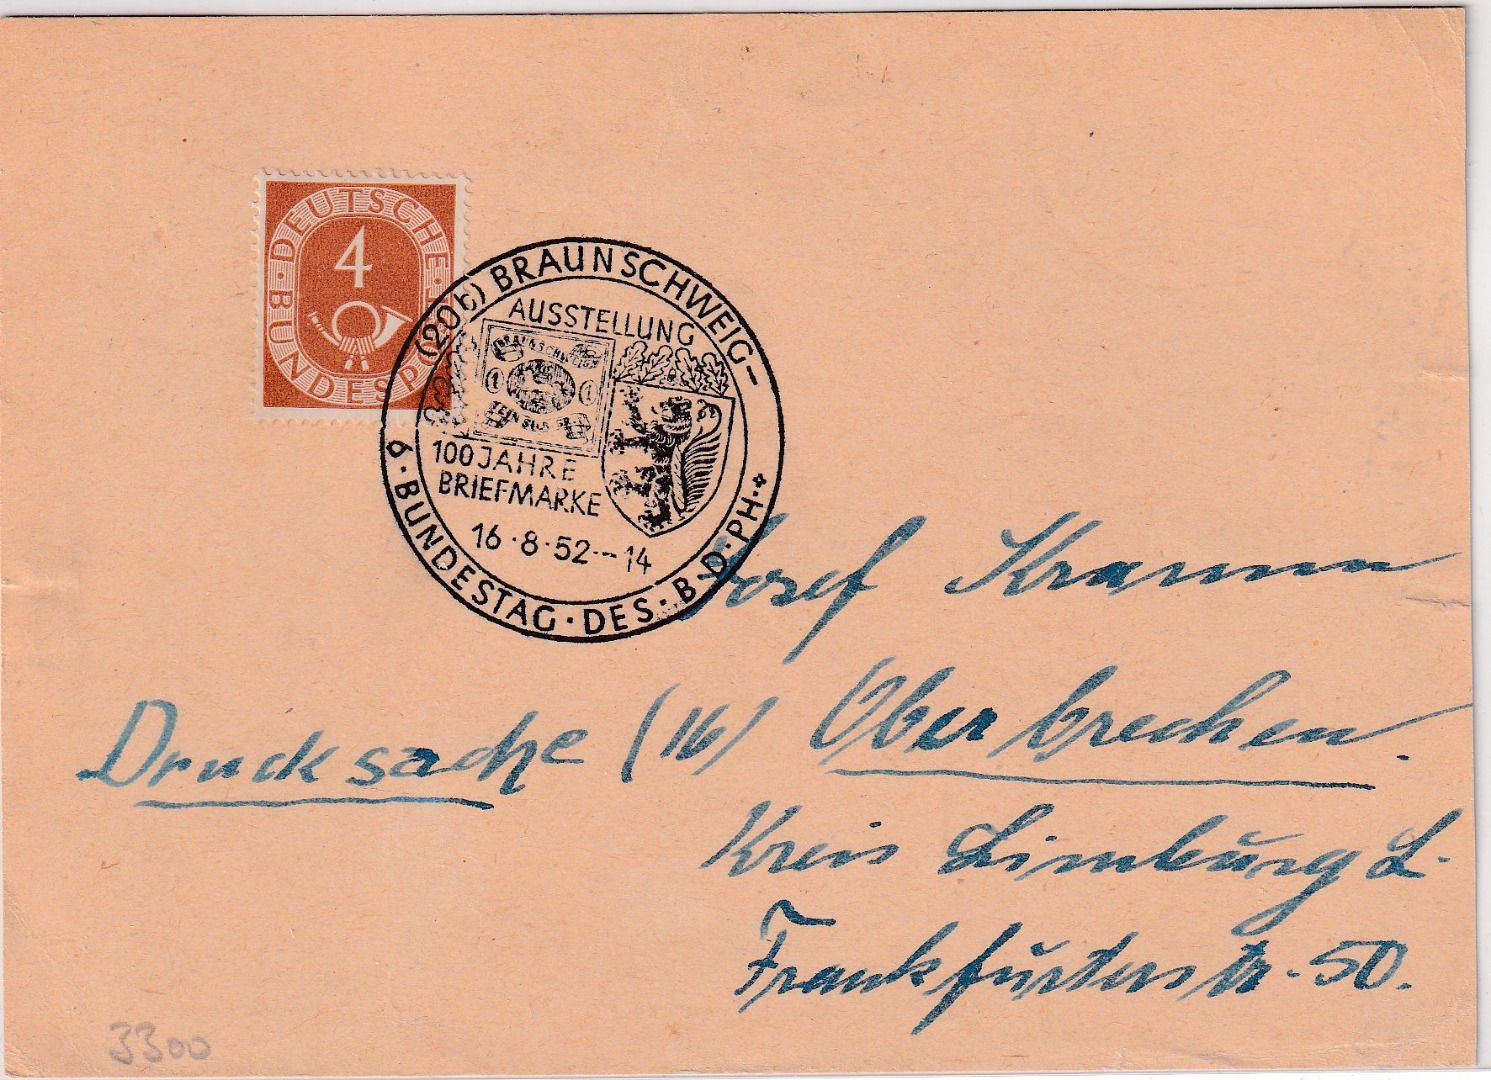 DEUTSCHE
4
BUNDESPO
(20b) BRAUNSCHWEIG-
AUSSTELLUNG
BRAUNSCHWEIG
1 1
100 JAHRE
BRIEFMARKE
16.8.52--14
6. BUNDESTAG · DES · B·D·PH·
Josef Kramm
Drucksache (16) Oberbrechen.
Kreis Limburg L.
Frankfurterstr. 50.
3300